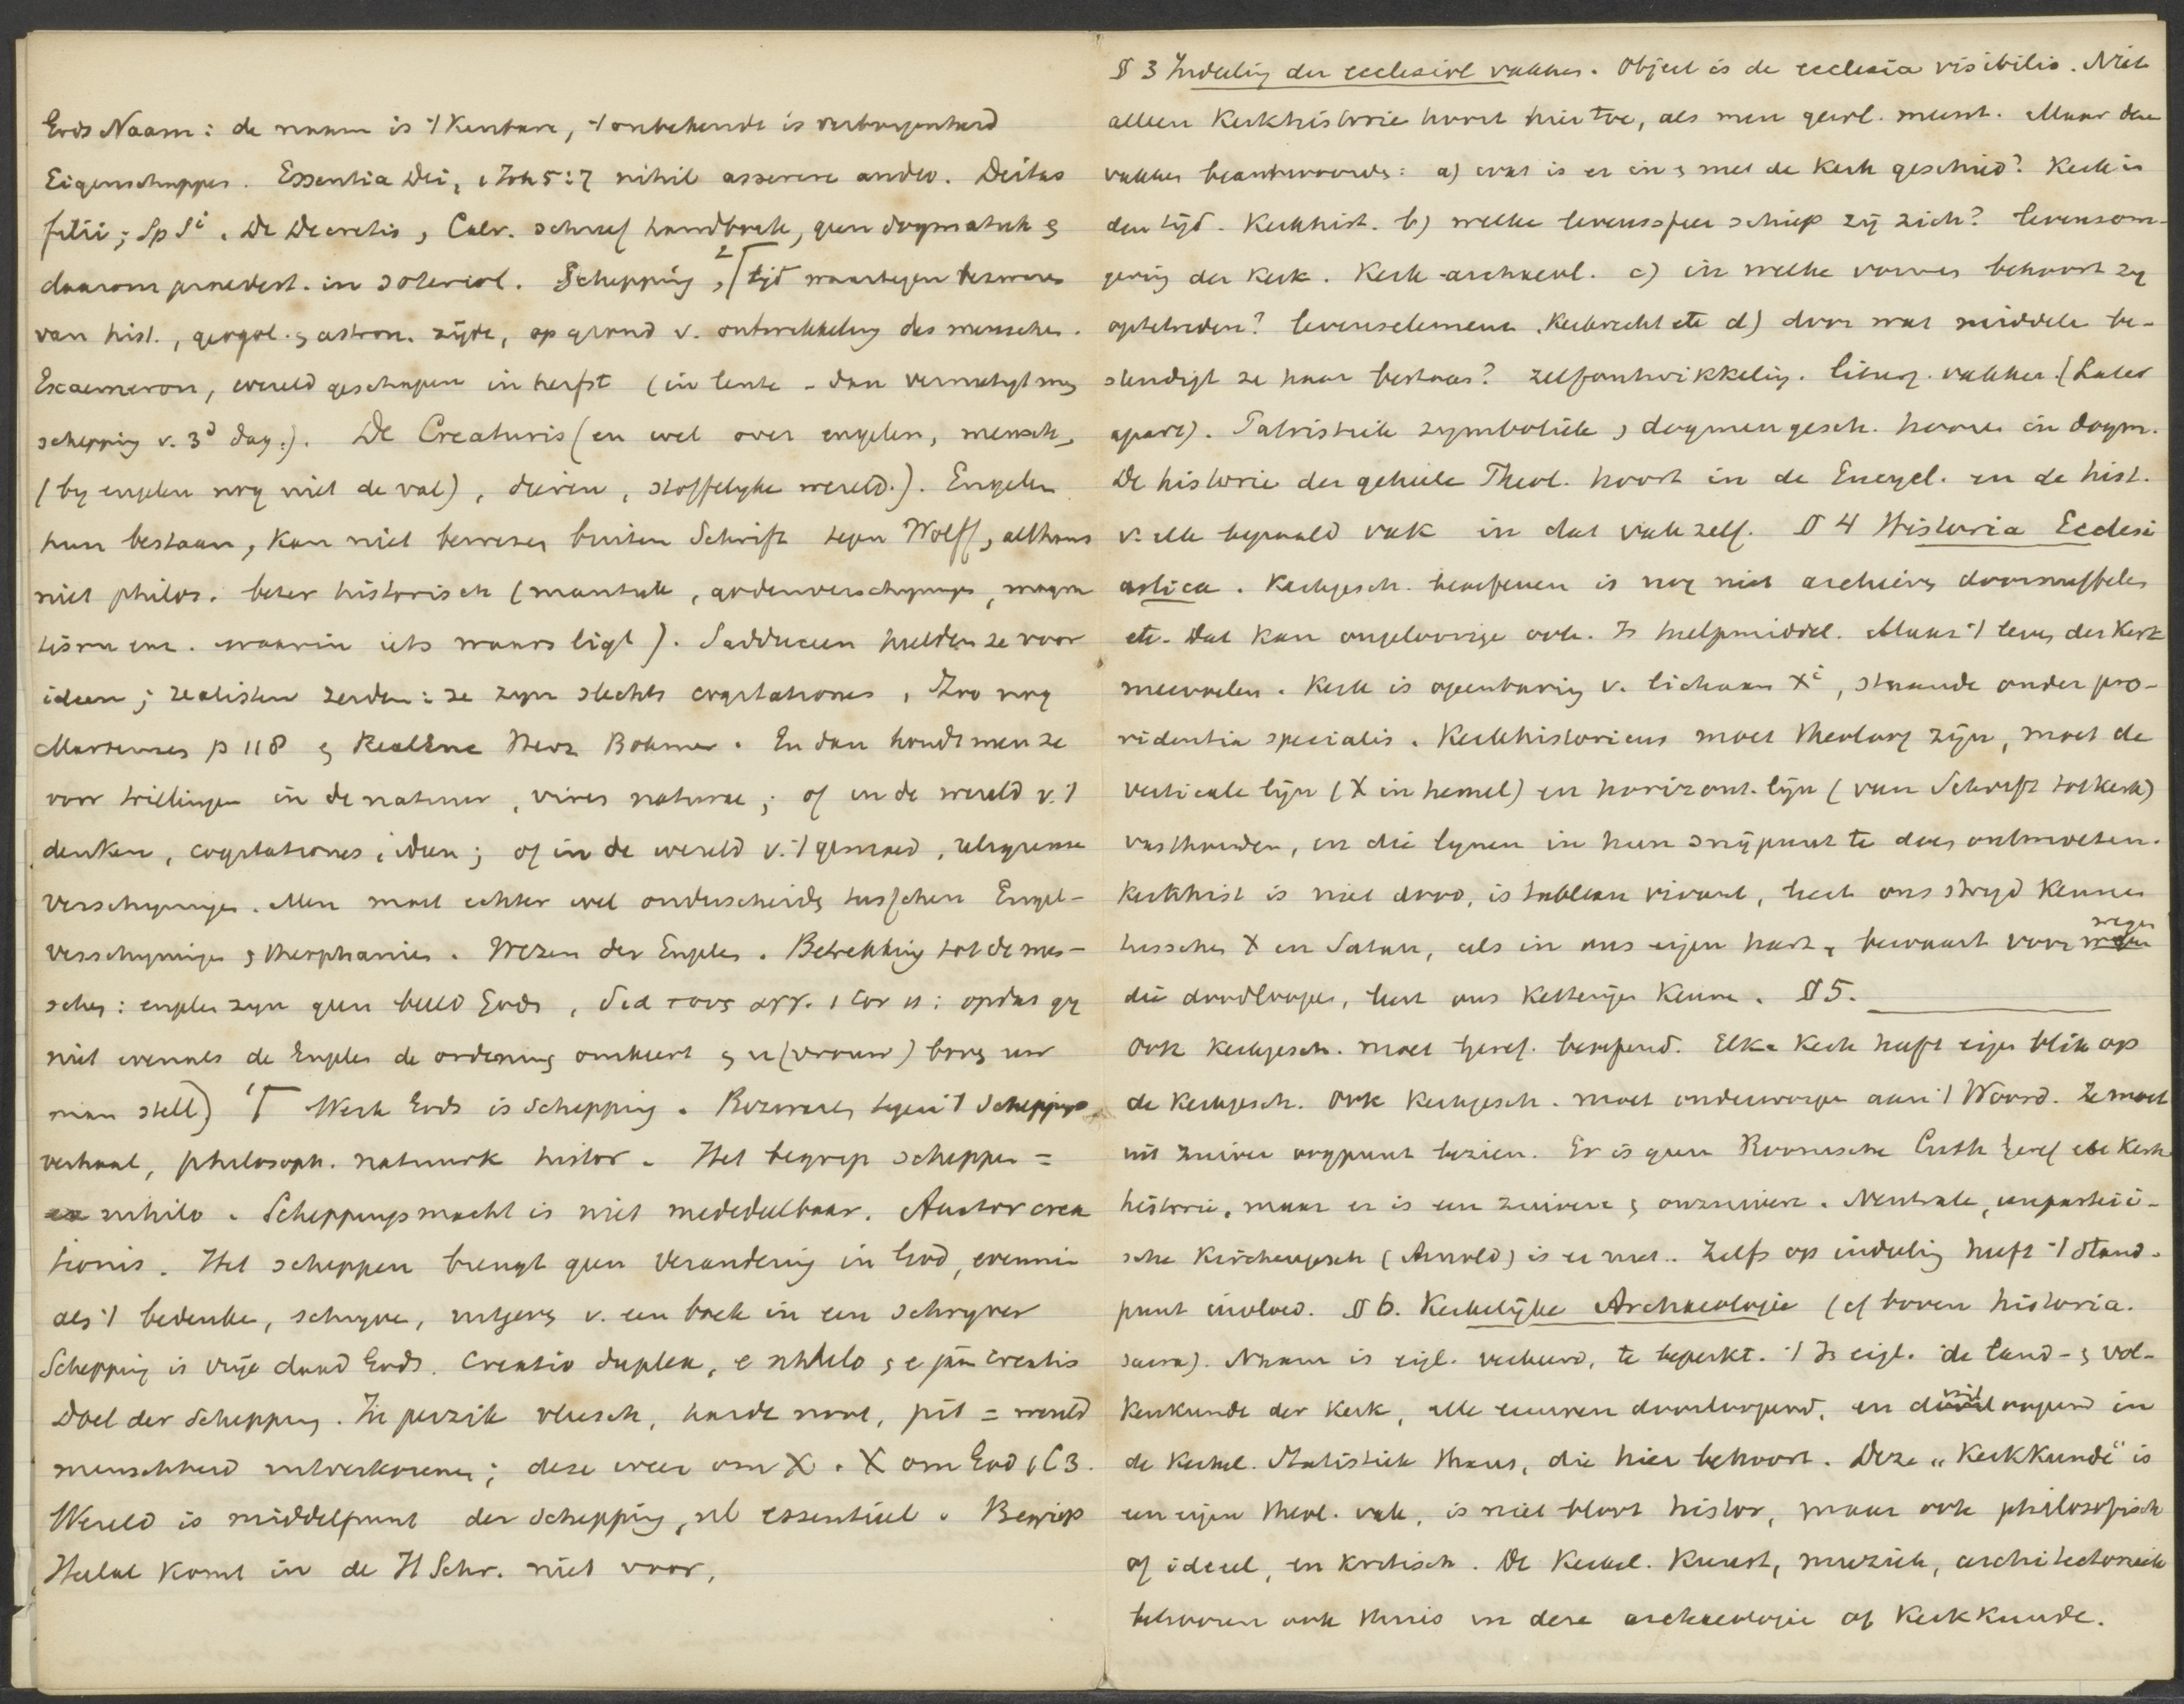 Gods Naam: de naam is 't Kenbare, 't onbekende is verborgenheid
Eigenschappen. Essentia Dei, 1 Joh 5:7 nihil asserere audeo. Deitas
filii; Sp Si. De Decretis, Calv. schreef handboek, geen dogmatiek &
daarom praedest. in soteriol. Schepping, 2⌈ tijd waartegen bezwaren
van hist., geogol. & astron. zijde, op grond v. ontwikkeling des menschen.
Exaemeron, wereld geschapen in herfst (in lente - dan vernietigt men
schepping v. 3d dag.). De Creaturis (en wel over engelen, mensch,
(by engelen nog niet de val), dieren, stoffelyke wereld.). Engelen
hun bestaan, kan niet bewezen buiten Schrift tegen Wolff, althans
niet philos. beter historisch (mantiek, godenverschynings, magne
tisru enz. waarin iets waars ligt). Sadduceen hielden ze voor
ideen; realisten zeiden: ze zyn slechts cogitationes, Zoo nog
Martensen p 118 & RealEnc Herz Bohmer. En dan houdt men ze
voor trillingen in de natuur, vires naturae; of in de wereld v. 't
denken, cogitationes, ideen; of in de wereld v. 't gemoed, religieuse
verschyningen. Men moet echter wel onderscheid tusschen Engel-
verschyningen & theophanien. Wezen der Engelen. Betrekking tot de men-
schen: engelen zyn geen beeld Gods, Διά τους αγγ. 1 Cor 11: opdat gy
niet evenals de Engelen de ordening omkeert & u (vrouw) boven uw
man stelt) 1⌈ Werk Gods is Schepping. Bezwaren tegen 't Scheppings
verhaal, philosoph. natuurk histor. Het begrip scheppen =
ex nihilo. Scheppingsmacht is niet mededeelbaar. Auctor crea
tionis. Het scheppen brengt geen verandering in God, evenmin
als 't bedenken, schryven, uitgeven v. een boek in een schryver
Schepping is vrije daad Gods. Creatio duplex, e nihilo & e jam creatis
Doel der Schepping. In perzik vleesch, harde noot, pit = wereld
menschheid uitverkorenen; deze weer om X. X om God 1 C 3.
Wereld is middelpunt der schepping, nl essentieel. Begrip
Heelal komt in de H Schr. niet voor,
§ 3 Indeeling der ecclesiol vakken. Object is de ecclesia visibilis. Niet
alleen Kerkhistorie hoort hier toe, als men gewl. meent. Maar deze
vakken beantwoorden: a) wat is er in & met de Kerk geschied? Kerk in
den tijd. Kerkhist. b) welke levenssfeer schiep zij zich? levensom-
gering der Kerk. Kerk-archaeol. c) in welke vormen behoort zy
optetreden? levenselement, Kerkrecht etc d) door wat middele be-
stendigt ze haar bestaan? zelfontwikkeling. liturg. vakken. (Later
apart). Patristiek symboliek, dogmengesch. hooren in dogm.
De historie der geheele Theol. hoort in de Encycl. en de hist.
v. elk bepaald vak in dat vak zelf. § 4 Historia Ecclesi
astica. Kerkgesch. beoefenen is nog niet archieven doorsnuffelen
etc. Dat kan ongeloovige ook. Is hulpmiddel. Maar 't leven der Kerk
meevoelen. Kerk is openbaring v. lichaam Xi, staande onder pro-
videntia specialis. Kerkhistoricus moet theoloog zijn, moet de
verticale lijn (X in hemel) en horizont. lijn (van Schrift tot Kerk)
vasthouden, en die lynen in hun snijpunt te doen ontmoeten.
Kerkhist is niet dood, is tableau vivant, leert ons stryd kennen
tusschen X en Satan, als in ons eigen hart, bewaart voor wegen
die doodloopen, leert ons Ketterijen kennen. § 5.
Ook Kerkgesch. moet geref. beoefend. Elke Kerk heeft eigen blik op
de Kerkgesch. Ook Kerkgesch. moet onderworpen aan 't Woord. Ze moet
uit zuiver oogpunt bezien. Er is geen Roomsche Luth geref etc Kerk
historie, maar er is een zuivere & onzuivere. Neutrale, unparteii-
sche Kirchengesch (Arnold) is er niet.. Zelfs op indeeling heeft 't stand-
punt invloed. § 6. Kerkelijke Archaeologie (cf boven historia
sacra). Naam is eigl. verkeerd, te beperkt. 't Is eigl. de land- & vol-
kenkunde der Kerk, alle eeuwen doorloopend, en uitloopend in
de Kerkel. Statistiek thans, die hier behoort. Deze „Kerkkunde" is
een eigen theol. vak, is niet bloot histor, maar ook philosofisch
of ideeel, en kritisch. De Kerkel. Kunst, muziek, architectoniek
behooren ook thuis in deze archaeologie of Kerkkunde.